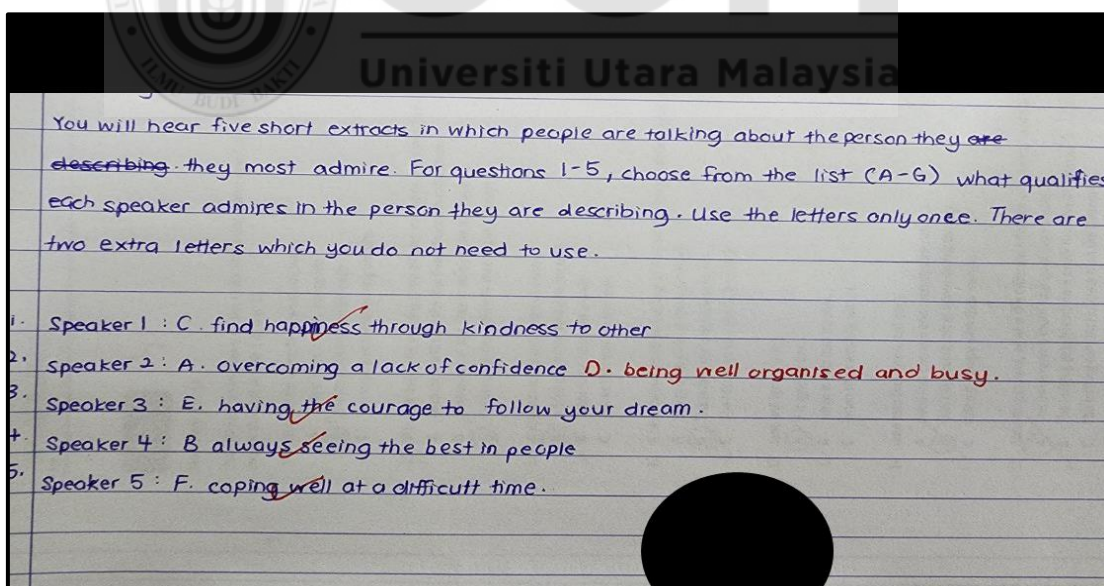 Universiti Utara Malaysia
ILMU BUDI BAKTI
You will hear five short extracts in which people are talking about the person they are
describing. they most admire. For questions 1-5, choose from the list (A-G) what qualifies
each speaker admires in the person they are describing. Use the letters only once. There are
two extra letters which you do not need to use.
1. Speaker 1 : C. find happiness through kindness to other
2. Speaker 2 : A. overcoming a lack of confidence D. being well organised and busy.
3. Speaker 3 : E. having the courage to follow your dream.
4. Speaker 4 : B always seeing the best in people
5. Speaker 5 : F. coping well at a difficult time.